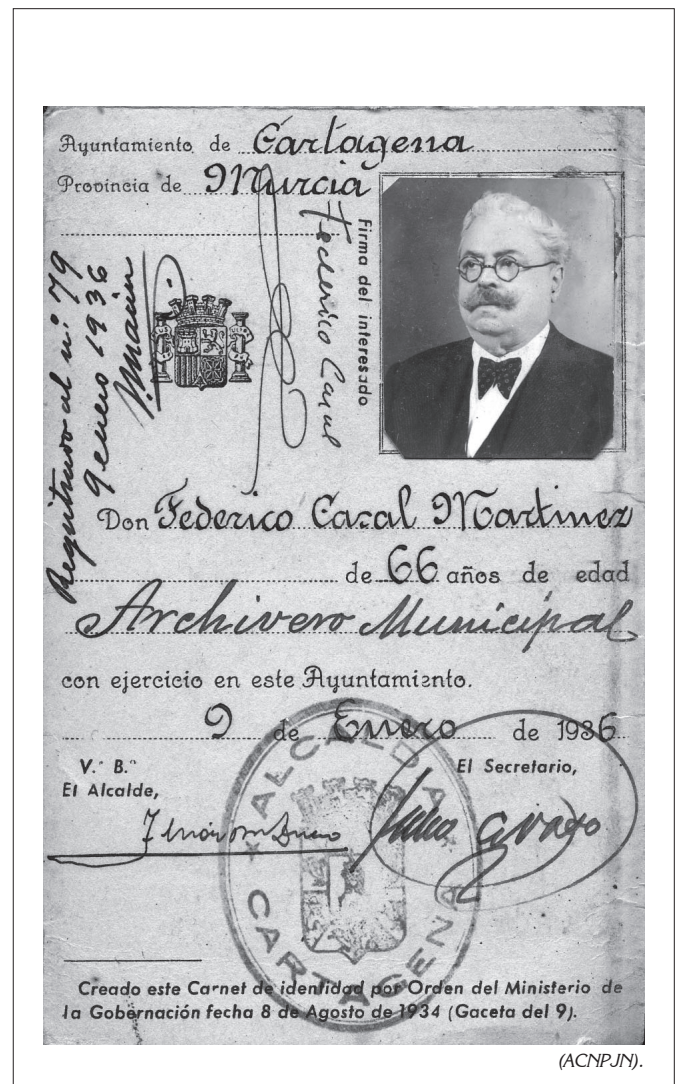 Ayuntamiento de Cartagena
Provincia de Murcia
Firma del interesado
Federico Casal
Registrado al n.º 79
9 enero 1936
Don Federico Casal Martinez
de 66 años de edad
Archivero Municipal
con ejercicio en este Ayuntamiento.
9 de Enero de 1936
V.º B.º
El Alcalde,
El Secretario,
ALCALDIA
CARTAGENA
Creado este Carnet de identidad por Orden del Ministerio de
la Gobernación fecha 8 de Agosto de 1934 (Gaceta del 9).
(ACNPJN).